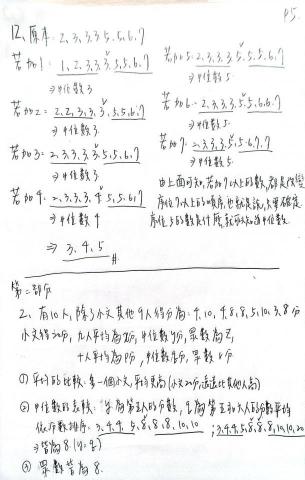 P5.
12. 原本: 2, 3, 3, 3, 5, 5, 6, 7
若加1: 1, 2, 3, 3, 3, 5, 5, 6, 7
⇒中位數3
若加2: 2, 2, 3, 3, 3, 5, 5, 6, 7
⇒中位數3
若加3: 2, 3, 3, 3, 3, 5, 5, 6, 7
⇒中位數3
若加4: 2, 3, 3, 3, 4, 5, 5, 6, 7
⇒中位數4
⇒ 3, 4, 5 #
若加5: 2, 3, 3, 3, 5, 5, 5, 6, 7
⇒中位數5
若加6: 2, 3, 3, 3, 5, 5, 6, 6, 7
⇒中位數5
若加7: 2, 3, 3, 3, 5, 5, 6, 7, 7
⇒中位數5
由上面可知, 若加7以上的數, 都是改變
序位7以上的順序, 也就是說, 只要確定
序位5的數是什麼, 就可以知道中位數
第二部分
2. 有10人, 除了小文其他9人得分為: 4, 10, 4, 8, 8, 5, 10, 3, 8分
小文得20分, 九人平均為x分, 中位數y分, 眾數為z,
十人平均為p分, 中位數q分, 眾數r分
① 平均的比較: 多一個小文, 平均更高 (小文20分, 遠遠比其他人高)
② 中位數的比較: y為第五人的分數, q為第五和六人的分數平均
依分數排序: 3, 4, 4, 5, 8, 8, 8, 10, 10 ; 3, 4, 4, 5, 8, 8, 8, 10, 10, 20
⇒皆為8 (y=q)
③ 眾數皆為8.